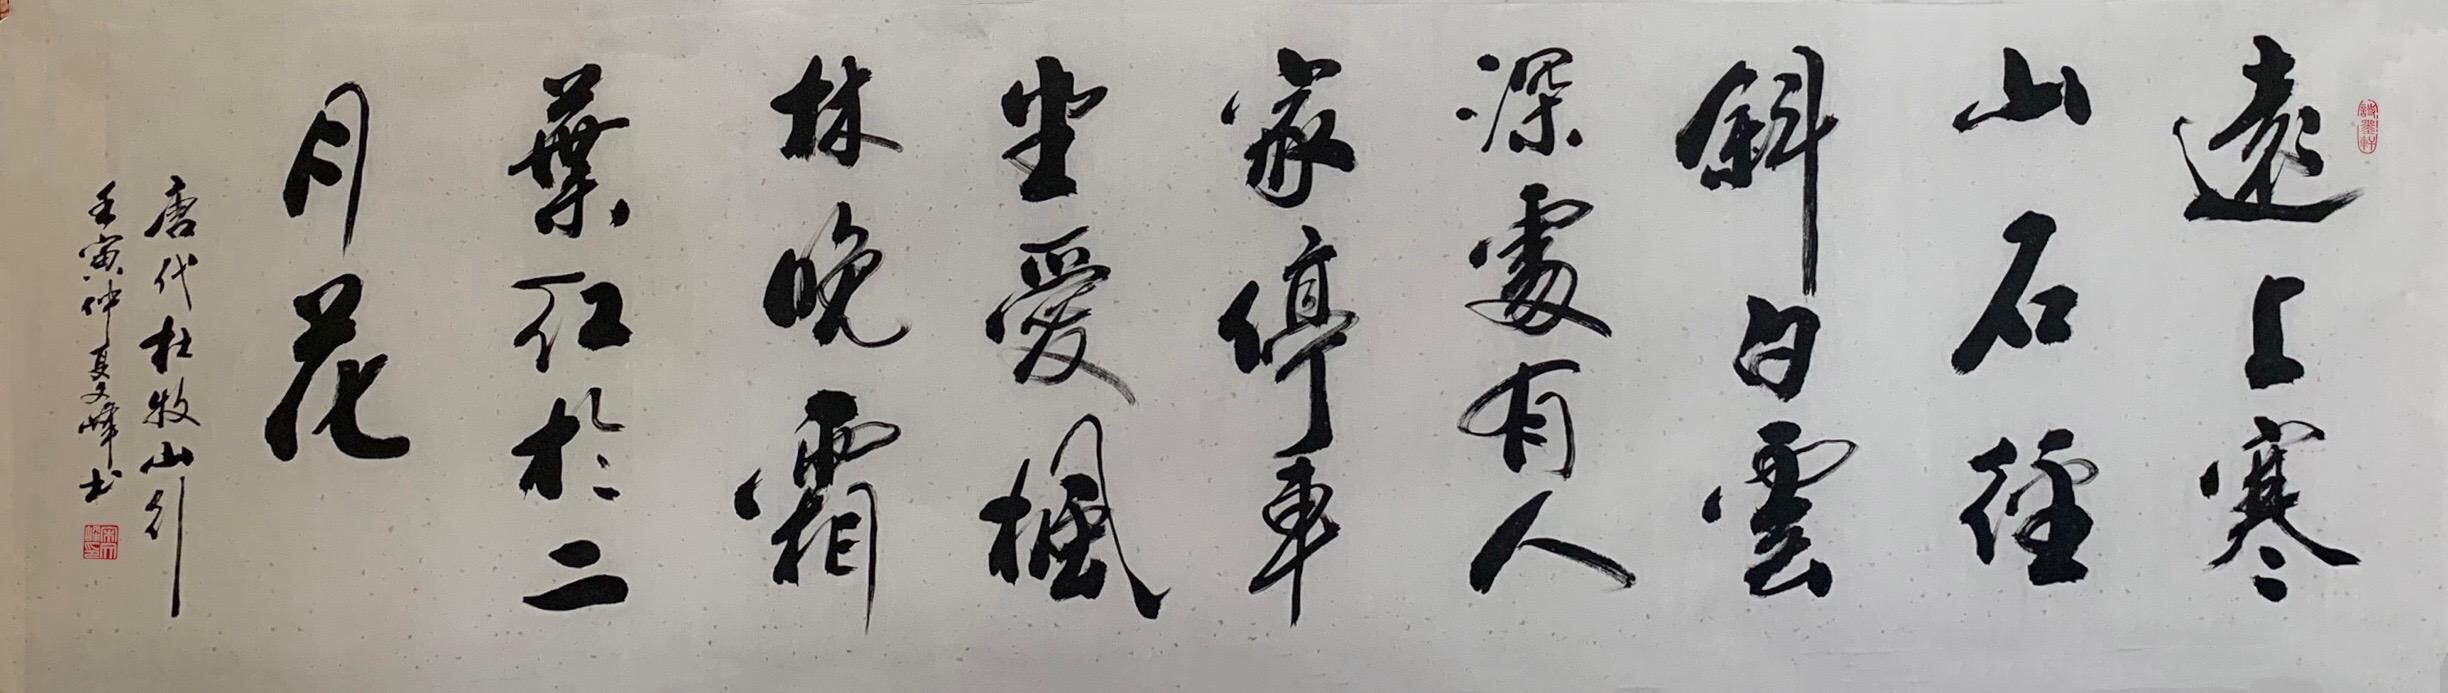 遠上寒
山石徑
斜白雲
深處有人
家停車
坐愛楓
林晚霜
葉紅於二
月花
唐代杜牧山行
壬寅仲夏文峰书